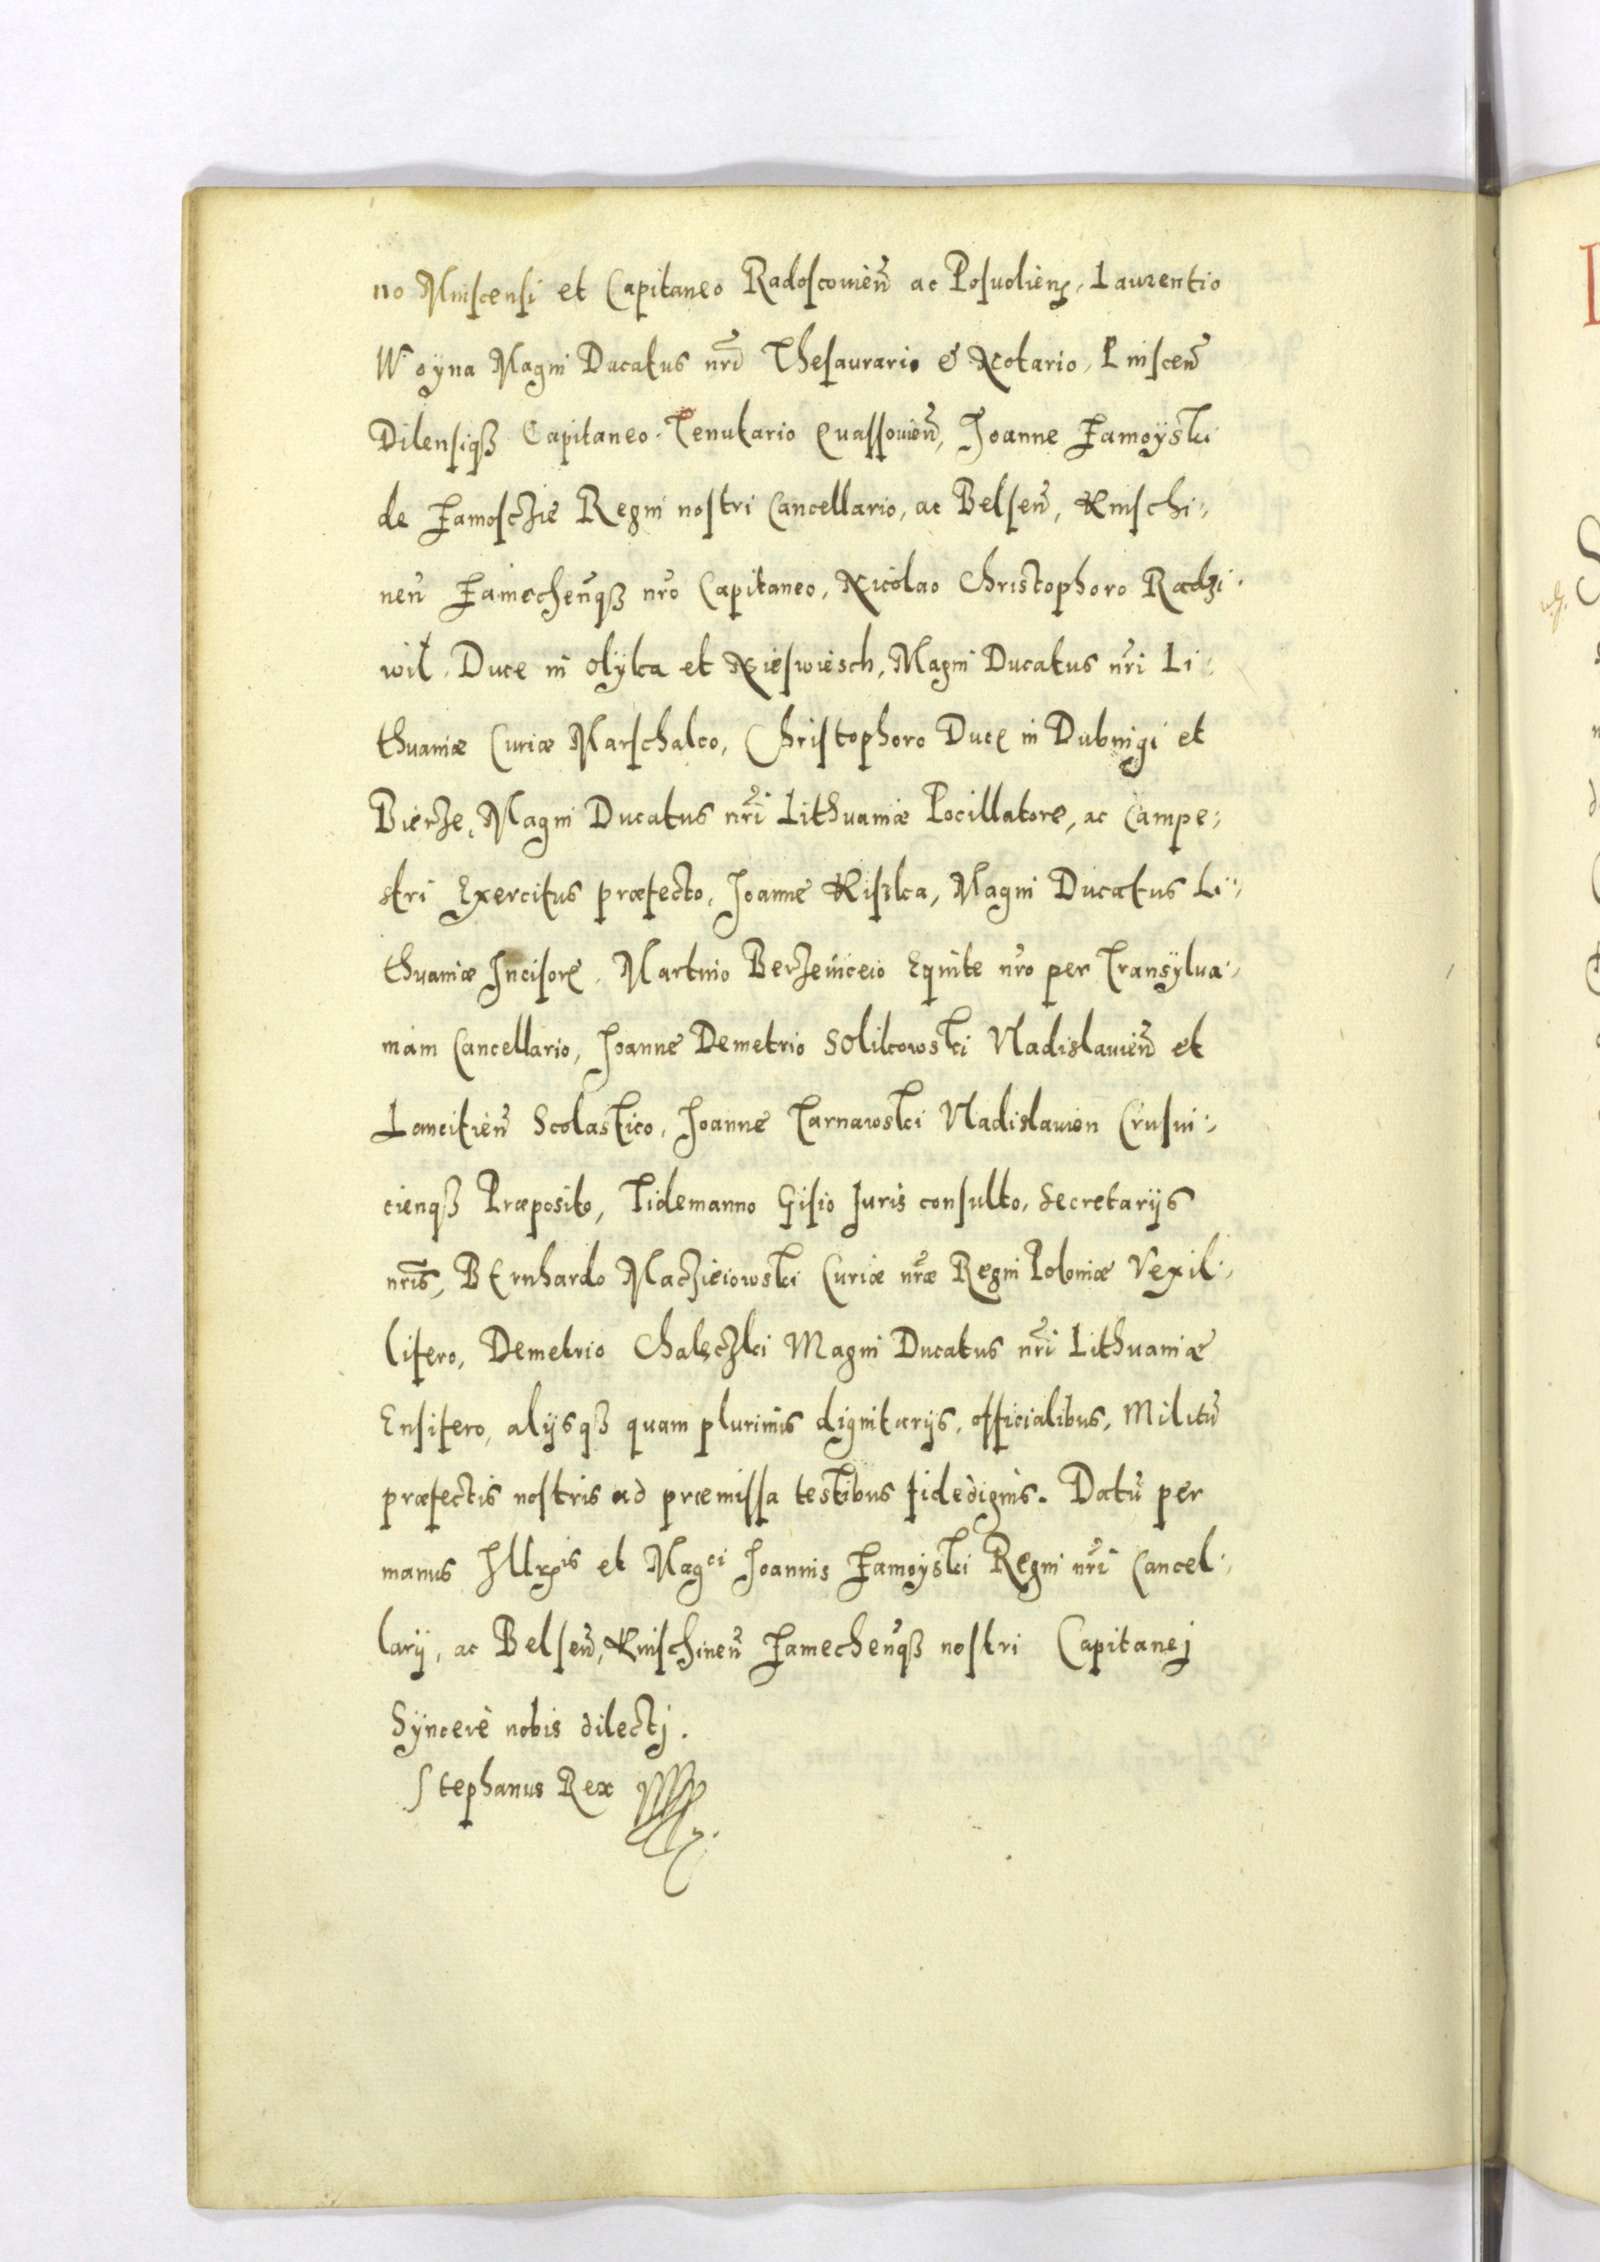 no Minscensi et Capitaneo Radoscovień ac Posvolieñ, Laurentio
Woÿna Magni Ducatus nr̃i Thesaurario & Notario, Pinsceñ
Dilensiqꝫ Capitaneo Tenutario Quassovieñ, Joanne Zamoÿski
de Zamosczie Regni nostri Cancellario, ac Belseñ, Knischi:,
neñ Zamecheñqꝫ nr̃o Capitaneo, Nicolao Christophoro Radzi:
wil Duce in Olÿka et Nieswiesch, Magni Ducatus nr̃i Li:,
thuaniæ Curiæ Marschalco, Christophoro Duce in Dubnigi et
Bierze, Magni Ducatus nr̃i Lithuaniæ Pocillatore, ac Campe:,
stri Exercitus præfecto, Joanne Kiszka, Magni Ducatus Li:,
thuaniæ Incisore, Martino Berzeviceio Equite nr̃o per Transÿlva:,
niam Cancellario, Joanne Demetrio Solikowski Vladislavieñ et
Lancitieñ Scolastico, Joanne Tarnawski Vladislavien Crusvi:,
cienqꝫ Præposito, Tidemanno Gisio Juris consulto, Secretarijs
nr̃is, BErnhardo Maczieiowski Curiæ nr̃æ Regni Poloniæ Vexil:,
lifero, Demetrio Chaleczki Magni Ducatus nr̃i Lithuaniæ
Ensifero, alijsqꝫ quam plurimis dignitarijs, officialibus, Militū
præfectis nostris ad præmissa testibus fidedignis. Datū per
manus Illr̃is et Magci Joannis Zamoÿski Regni nr̃i Cancel:,
larij, ac Belseñ, Knischineñ Zamecheñqꝫ nostri Capitanej
Sÿncerè nobis dilectj.
Stephanus Rex